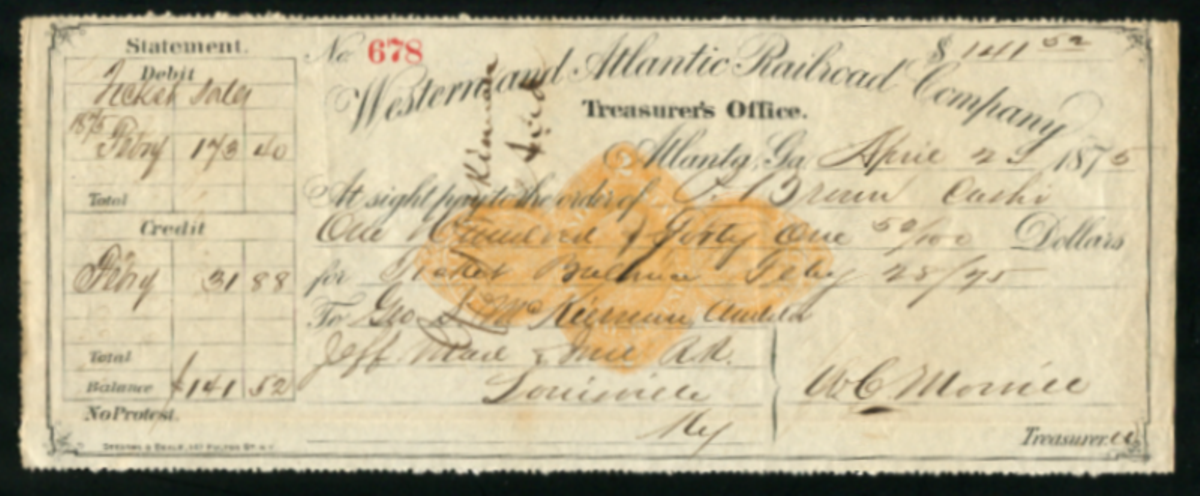 Statement.
Debit
Ticket Sales
1875
Febry 173 40
Total
Credit
Febry 31 88
Total
Balance $141 52
No Protest.
No. 678
$ 141 52
Western and Atlantic Railroad Company
Treasurer's Office.
Atlanta, Ga. April 23 1875
At sight pay to the order of Brown Cashr
One Hundred & Forty One 52/100 Dollars
for Ticket Balance Feby 28/75
To Geo McKiernan Auditor
Jeff Mad & Ind R.R.
Louisville
Ky
W C Morrill
Treasurer